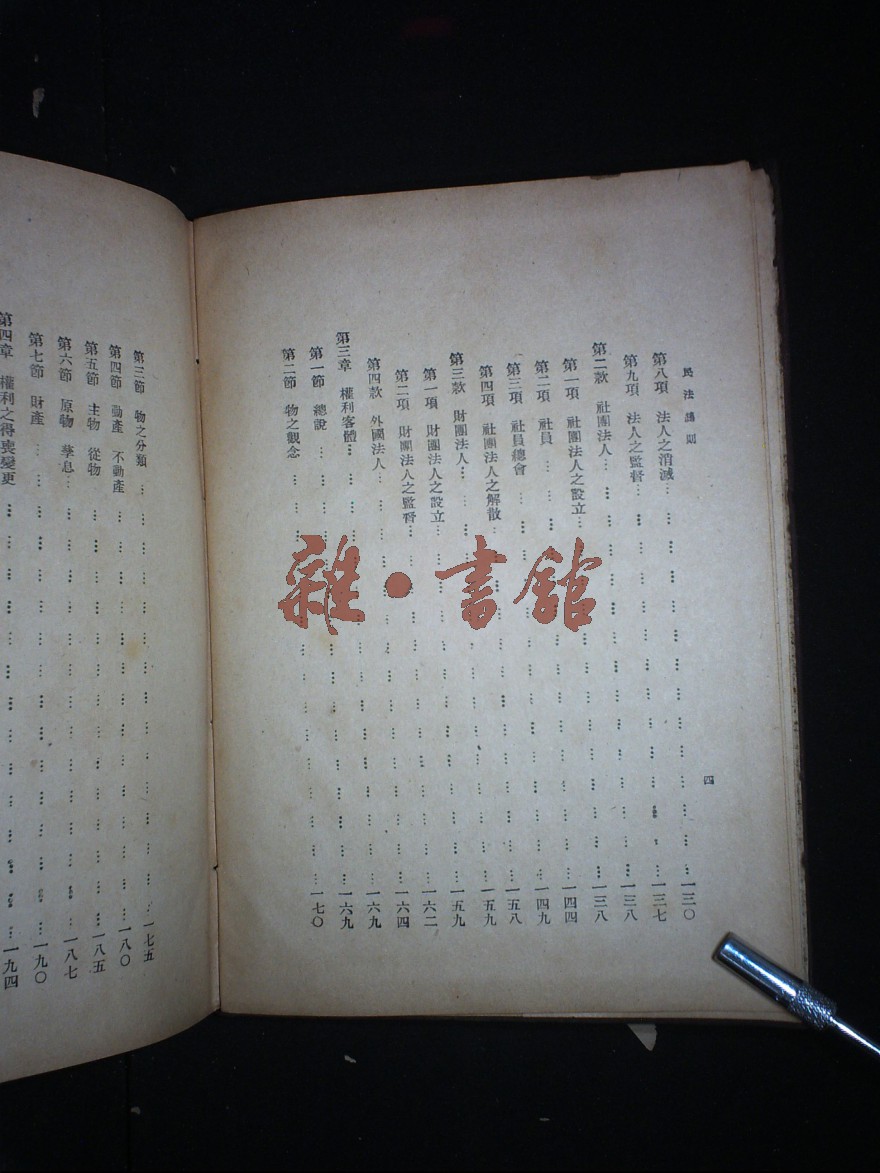 民法總則
四
第八項 法人之消滅 … 一三〇
第九項 法人之監督 … 一三七
第二款 社團法人 … 一三八
第一項 社團法人之設立 … 一三八
第二項 社員 … 一四四
第三項 社員總會 … 一四九
第四項 社團法人之解散 … 一五八
第三款 財團法人 … 一五九
第一項 財團法人之設立 … 一五九
第二項 財團法人之監督 … 一六二
第四款 外國法人 … 一六四
第三章 權利客體 … 一六九
第一節 總說 … 一六九
第二節 物之觀念 … 一七〇
第三節 物之分類 … 一七五
第四節 動產 不動產 … 一八〇
第五節 主物 從物 … 一八五
第六節 原物 孳息 … 一八七
第七節 財產 … 一九〇
第四章 權利之得喪變更 … 一九四
雜·書館